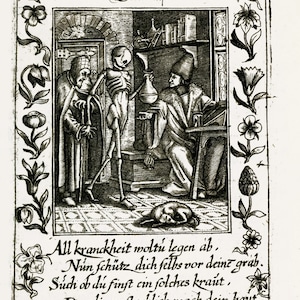 All kranckheit woltu legen ab,
Nun schütz dich selbs vor deine grab.
Such ob du finst ein solches kraut,